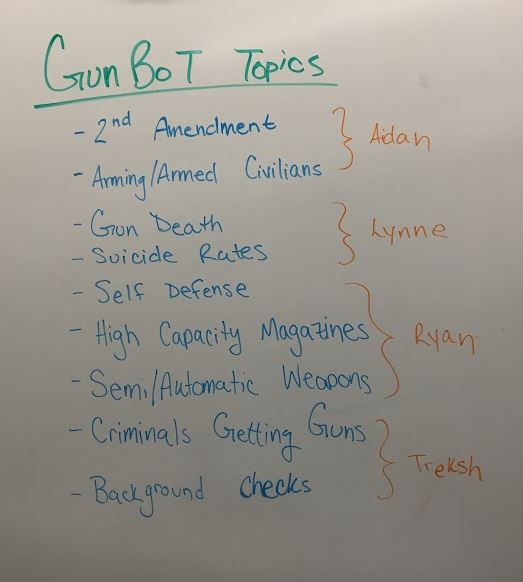 GunBoT Topics
- 2nd Amendment
- Arming/Armed Civilians
Aidan
- Gun Death
- Suicide Rates
Lynne
- Self Defense
- High Capacity Magazines
- Semi/Automatic Weapons
Ryan
- Criminals Getting Guns
- Background checks
Treksh